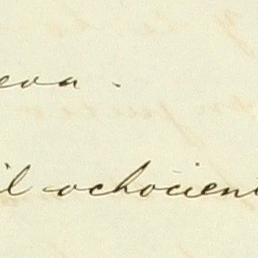 eva.
il ochocient